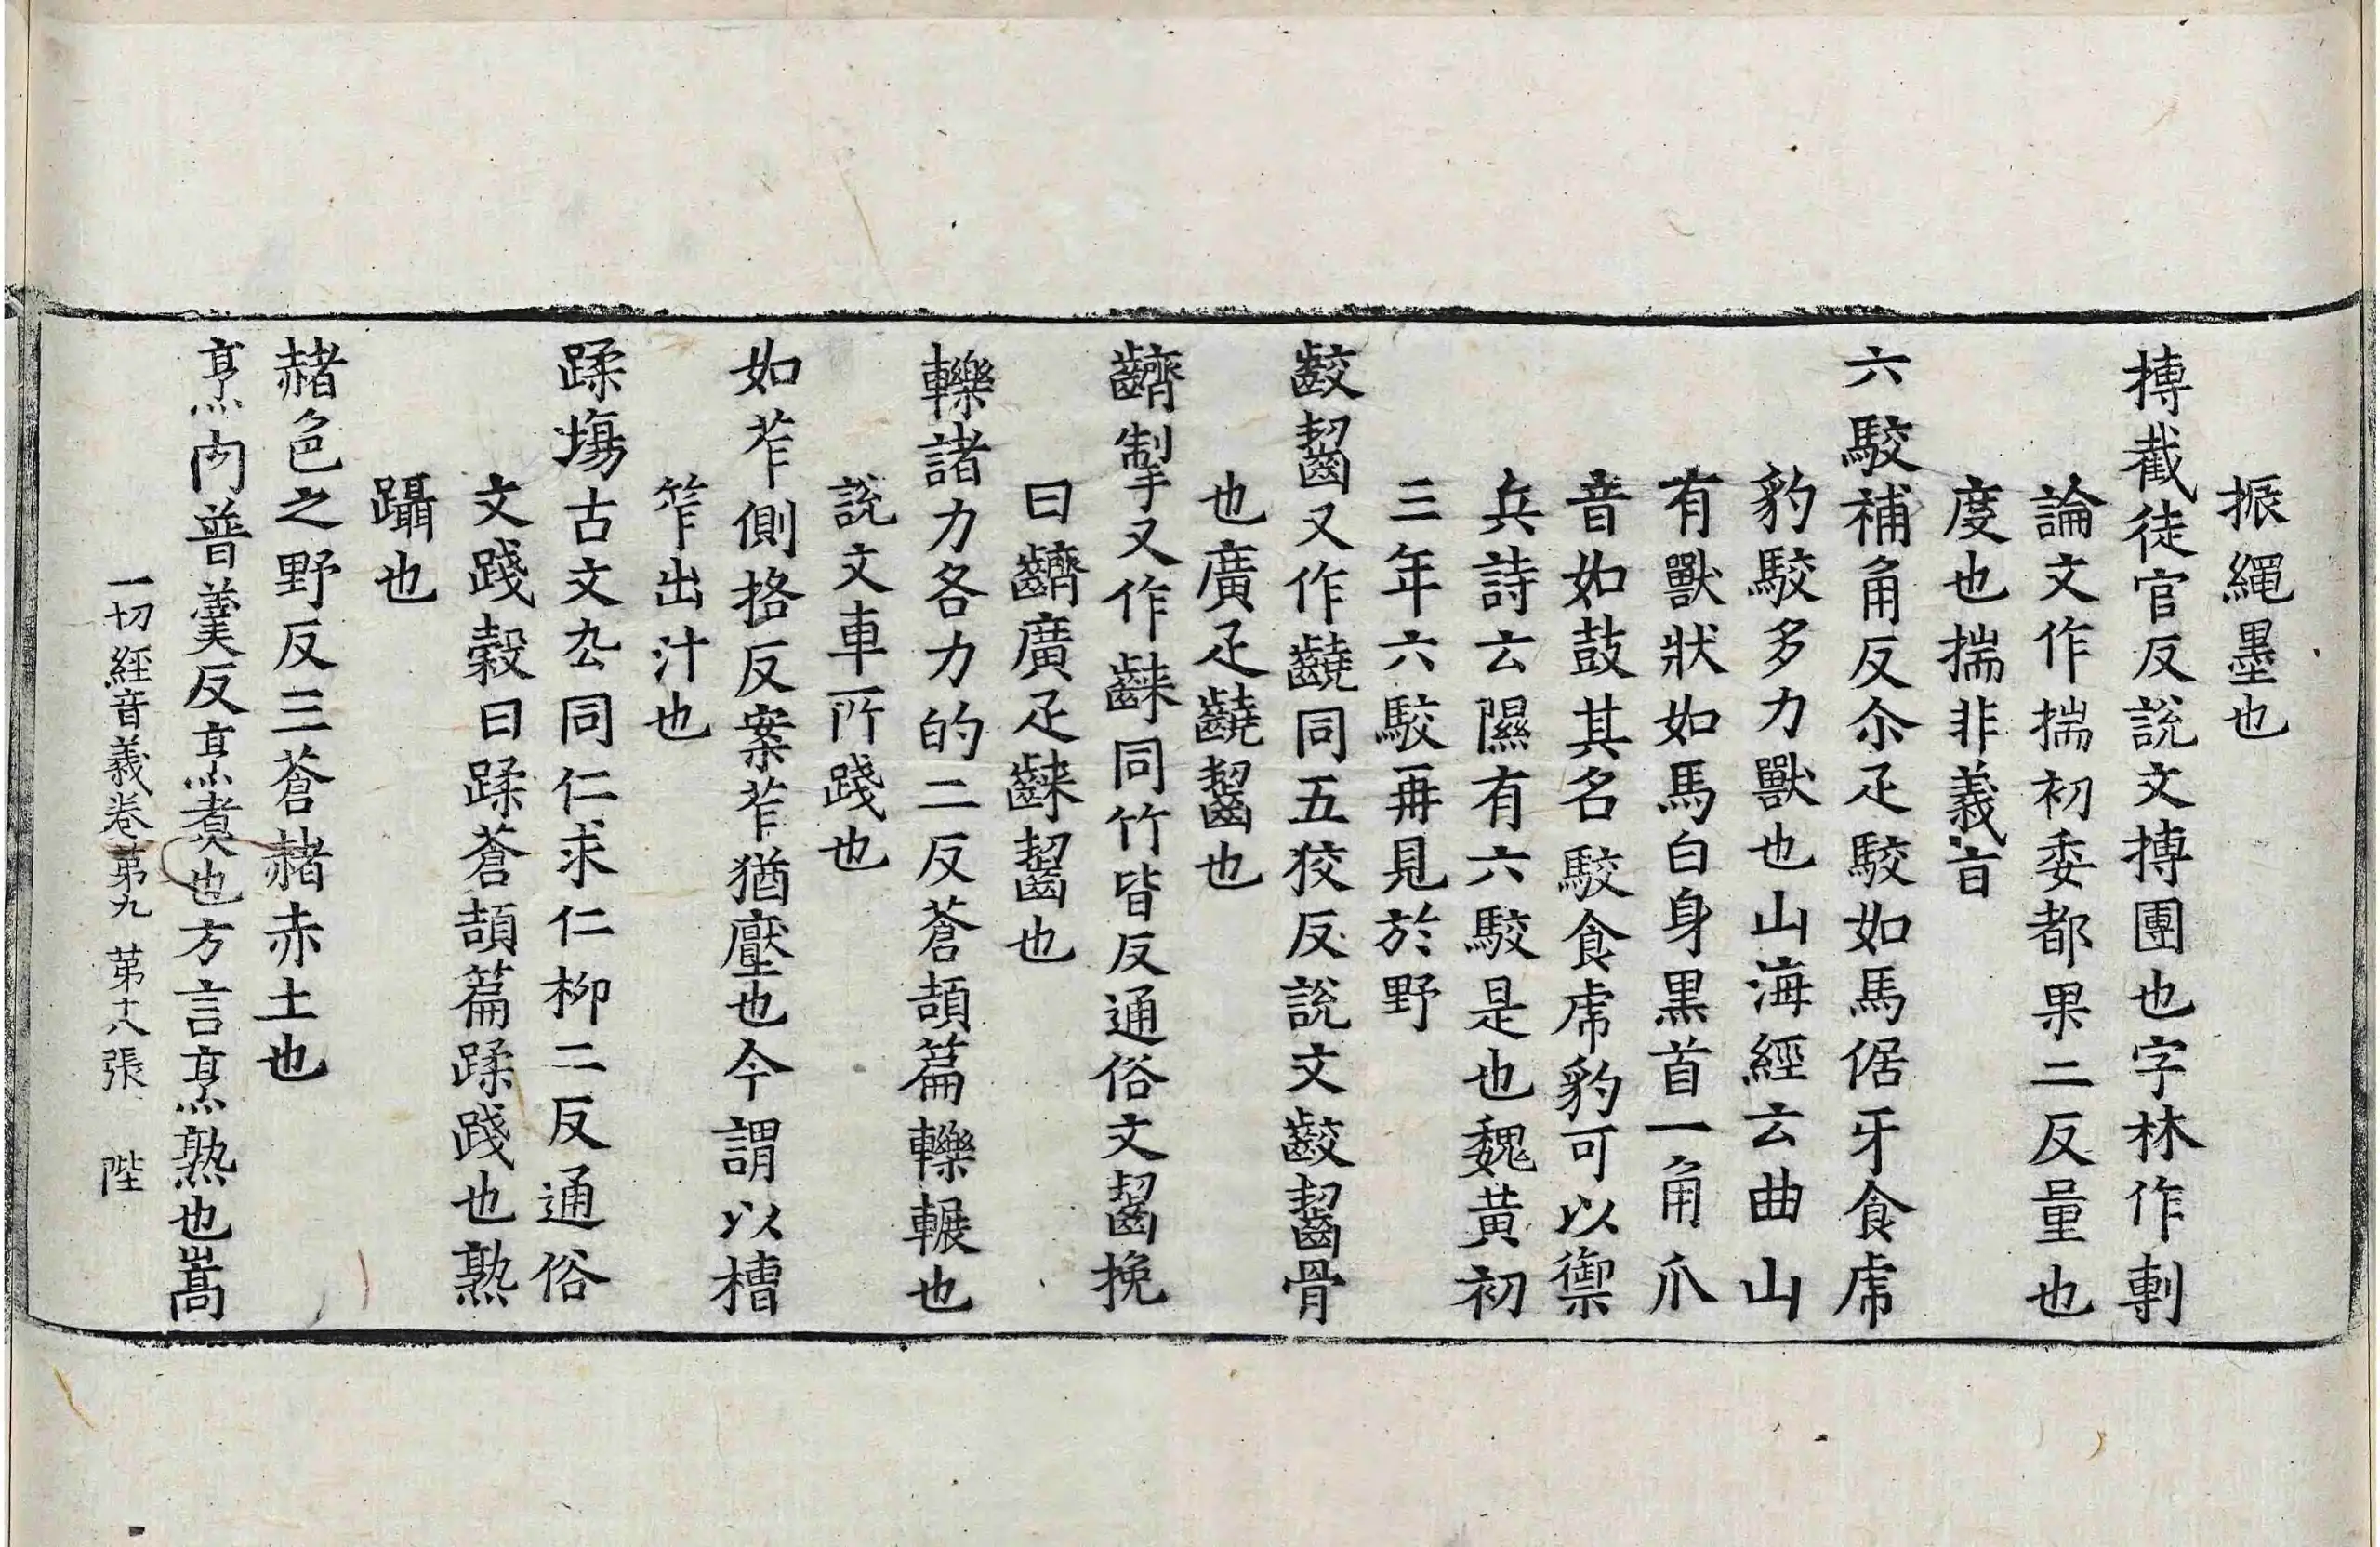 振繩墨也
摶截徒官反說文摶團也字林作剸
論文作揣初委都果二反量也
度也揣非義㫖
六駮補角反尒疋駮如馬倨牙食虎
豹駮多力獸也山海經云曲山
有獸狀如馬白身黒首一角爪
音如鼓其名駮食虎豹可以禦
兵詩云隰有六駮是也魏黃初
三年六駮再見於野
齩齧又作䶧同五狡反說文齩齧骨
也廣疋䶧齧也
齌掣又作齚同竹皆反通俗文齧挽
曰齌廣疋齚齧也
轢諸力各力的二反蒼頡篇轢輾也
說文車所踐也
如苲側挌反案苲猶壓也今謂以槽
笮出汁也
蹂塲古文厹同仁求仁柳二反通俗
文踐穀曰蹂蒼頡篇蹂踐也熟
躡也
赭色之野反三蒼赭赤土也
烹肉普羹反烹煮也方言烹熟也嵩
一切經音義卷第九 第十八張 陛